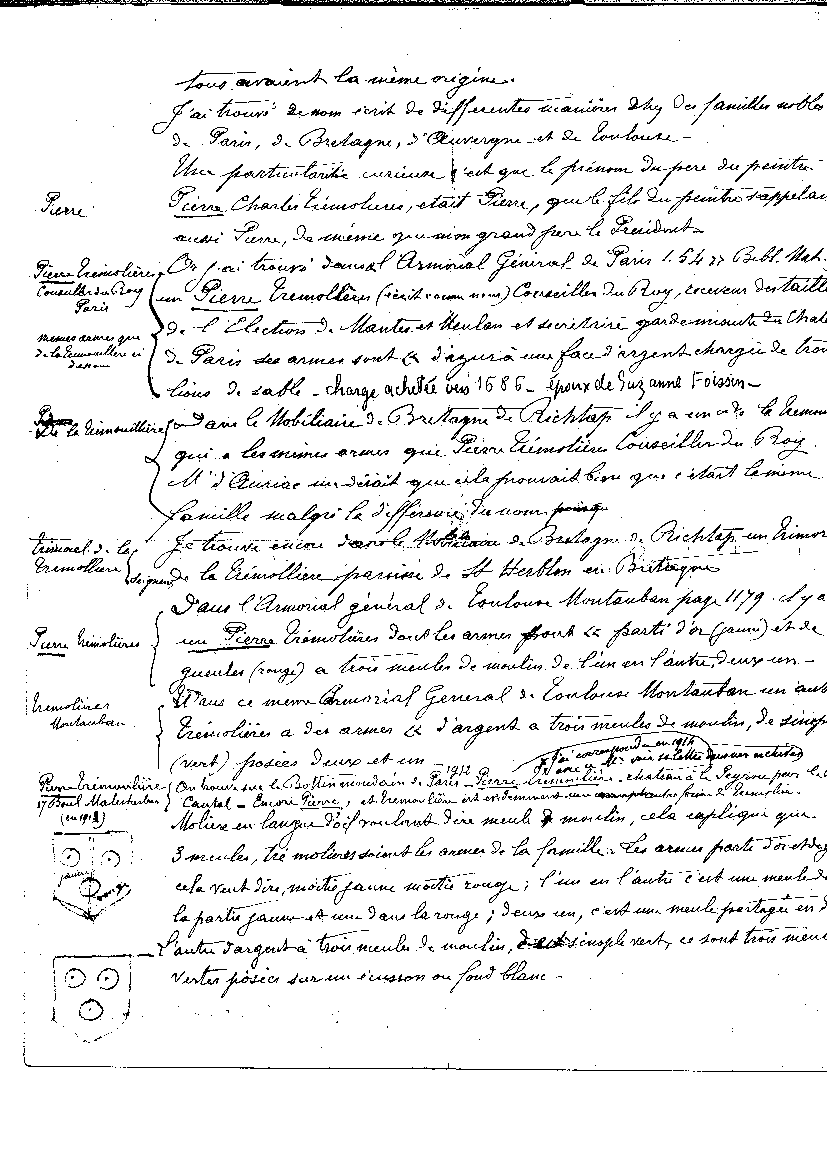 tous avaient la même origine.
J'ai trouvé ce nom écrit de differentes manières chez des familles nobles
de Paris, de Bretagne, d'Auvergne et de Toulouse -
Une particularité curieuse c'est que le prénom du pere du peintre
Pierre
Pierre Charles Trémolieres, etait Pierre, que le fils du peintre s'appelai
aussi Pierre, de même que mon grand pere le President -
Pierre Trémolières
Conseiller du Roy
Paris
mêmes armes que
de la Trémouillere ci
dessous
Or j'ai trouvé dans l'Armorial Général de Paris 1.54 Bibl. Nat.
un Pierre Tremollères (écrit comme nous) Conseiller du Roy, receveur des taille
de l'Election de Mantes et Meulan et secretaire garde minute du Chate
de Paris ses armes sont d'azur à une face d'argent chargée de troi
lions de sable - charge achetée vers 1686 - époux de Suzanne Foissin -
De la Trémouillère
Dans le Nobiliaire de Bretagne de Richtap il y a un de la Tremou
qui a les mêmes armes que Pierre Trémolières Conseiller du Roy.
Mr d'Auriac me disait que cela prouvait bien que c'était la même
famille malgré la difference du nom
trimoral de la
Tremolliere
Seigneur
Je trouve encore dans le Nobiliaire de Bretagne de Richtap un Trimor
de la Trémollière paroisse de St Herblon en Bretagne
Dans l'Armorial général de Toulouse Montauban page 1179 il y a
Pierre Trémolières
un Pierre Trémolières dont les armes sont parti d'or (jaune) et de
gueules (rouge) a trois meules de moulin de l'un en l'autre, deux un -
Tremolières
Montauban
Dans ce meme Armorial General de Toulouse Montauban un autr
Trémolières a des armes d'argent a trois meules de moulin, de sinop
(vert) posées deux et un
J'ai correspondu en 1914
avec ce Mr voir sa lettre
Pierre Trémouilière
17 Boul Malesherbes
(en 1912)
On trouve sur le Bottin mondain de Paris - 1912 Pierre Tremouilière - chateau à le Peyrou par le
Cantal - Encore Pierre, et Tremoulière est evidemment une
Moliere en langue d'oïl voulant dire meule de moulin, cela explique que
3 meules, tré molieres soient les armes de la famille - Les armes parti d'or et de g
cela veut dire, moitié jaune moitié rouge ; l'un en l'autre c'est une meule da
la partie jaune et une dans la rouge ; deux un, c'est une meule partagée en d
jaune
Rouge
L'autre d'argent à trois meules de moulin, sinople vert, ce sont trois meu
vertes posées sur un écusson ou fond blanc -